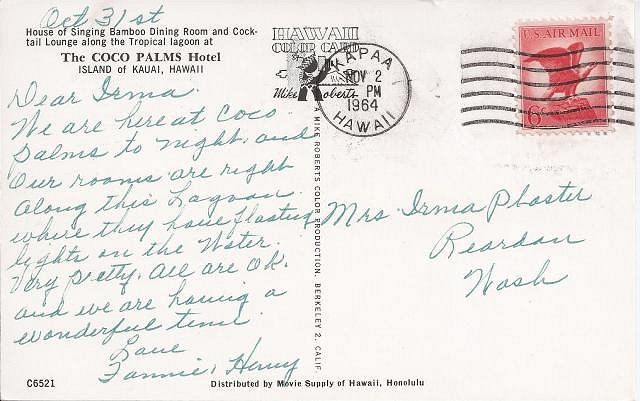 Oct 31st
House of Singing Bamboo Dining Room and Cock-
tail Lounge along the Tropical lagoon at
The COCO PALMS Hotel
ISLAND of KAUAI, HAWAII
Dear Irma.
We are here at Coco
palms to night. and
Our rooms are right
along this Lagoon.
where they have floating
lights on the Water.
Very pretty. All are OK.
and we are having a
wonderful time.
Love
Fannie, Henry
C6521
Distributed by Movie Supply of Hawaii, Honolulu
HAWAII
COLOR CARD
Mike Roberts
A MIKE ROBERTS COLOR PRODUCTION, BERKELEY 2, CALIF.
KAPAA
NOV 2
PM
1964
HAWAII
U.S. AIR MAIL
6c
Mrs. Irma
Reardan
Wash